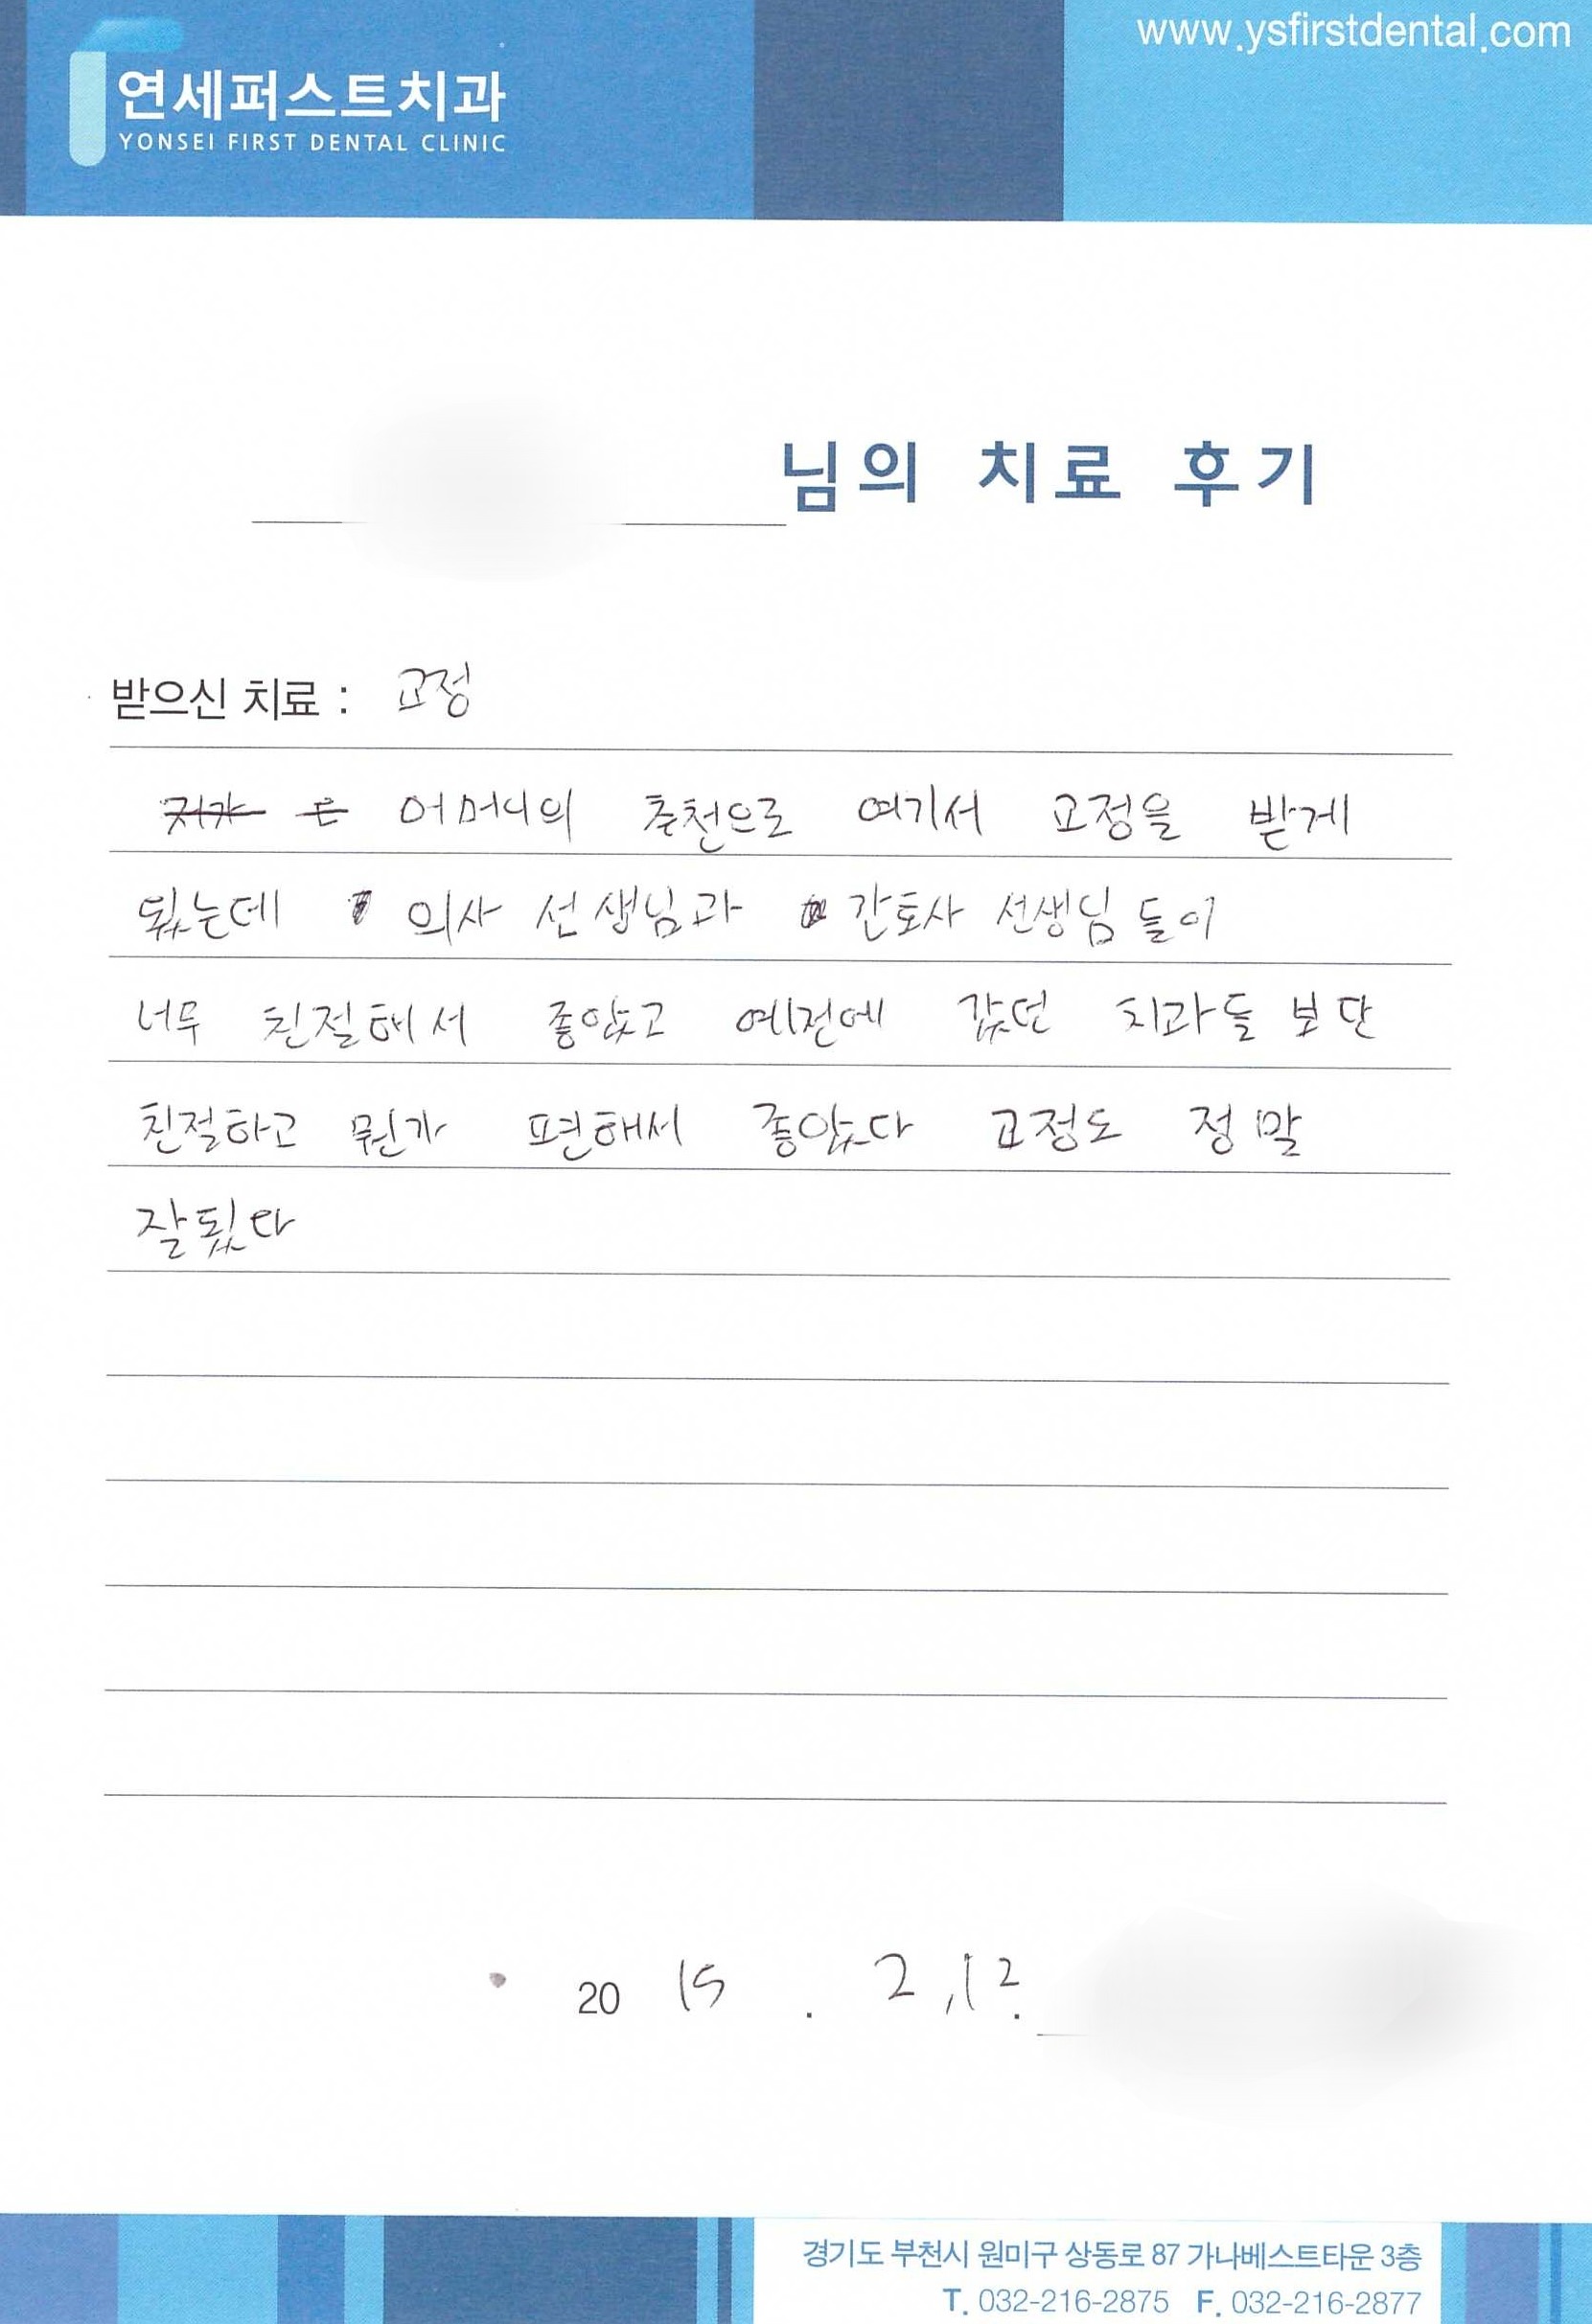 www.ysfirstdental.com
연세퍼스트치과
YONSEI FIRST DENTAL CLINIC
님의 치료 후기
받으신 치료 : 교정
어머니의 추천으로 여기서 교정을 받게
됬는데 의사 선생님과 간호사 선생님들이
너무 친절해서 좋았고 예전에 갔던 치과들 보단
친절하고 뭔가 편해서 좋았다 교정도 정말
잘됬다
20 15 . 2,12.
경기도 부천시 원미구 상동로 87 가나베스트타운 3층
T. 032-216-2875 F. 032-216-2877